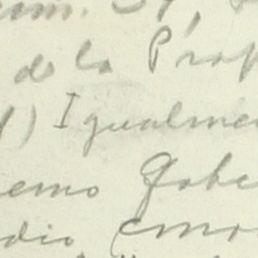 de la Prop
) Igualmen
emo Gobe
dio Emo